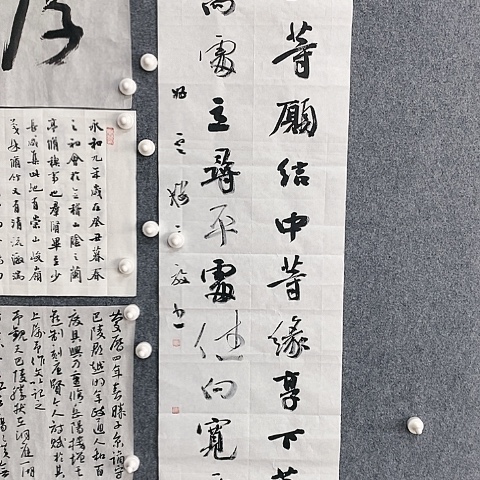 等願結中等緣享下等
高處立尋平處住向寬
永和九年歲在癸丑暮春
之初會於會稽山陰之蘭
亭脩稧事也羣賢畢至少
長咸集此地有崇山峻嶺
茂林脩竹又有清流激湍
慶曆四年春滕子京謫守
巴陵郡越明年政通人和百
廢具興乃重修岳陽樓增其
舊制刻唐賢今人詩賦於其
上屬予作文以記之
予觀夫巴陵勝狀在洞庭一湖